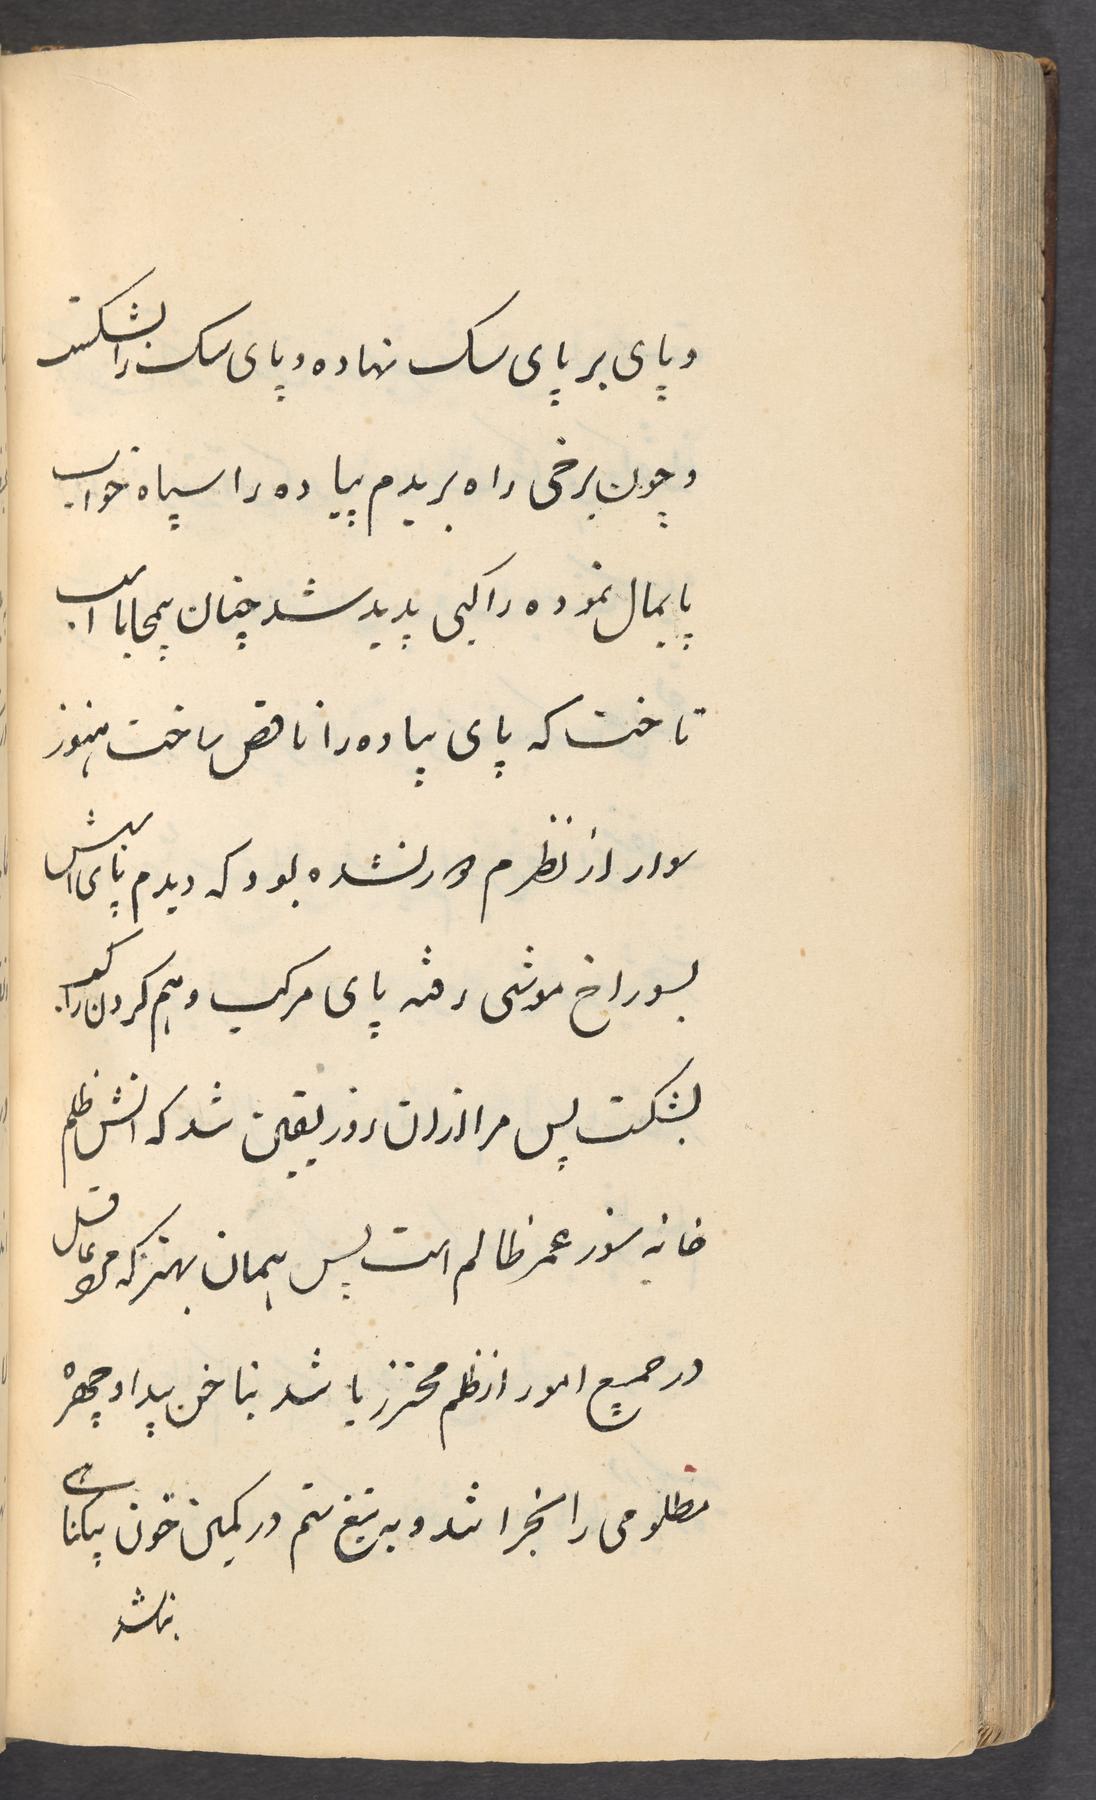 و پای بر پای سک نهاده و پای سک را بشکست
و چون برخی راه بریدم پیاده را سپاه خواب
پایمال نموده راکبی پدید شد چنان بیمحابا اسب
تاخت که پای پیاده را ناقص ساخت هنوز
سوار از نظرم دور نشده بود که دیدم پای اسبش
بسوراخ موشی رفته پای مرکب و هم کردن راکب
بشکست پس مرا ازان روز یقین شد که اتش ظلم
خانه سوز عمر ظالم است پس همان بهتر که مرد عاقل
در جمیع امور از ظلم محترز باشد بناخن بیداد چهره
مظلومی را نخراشد و به تیغ ستم در کمین خون بیکناهی
نباشد